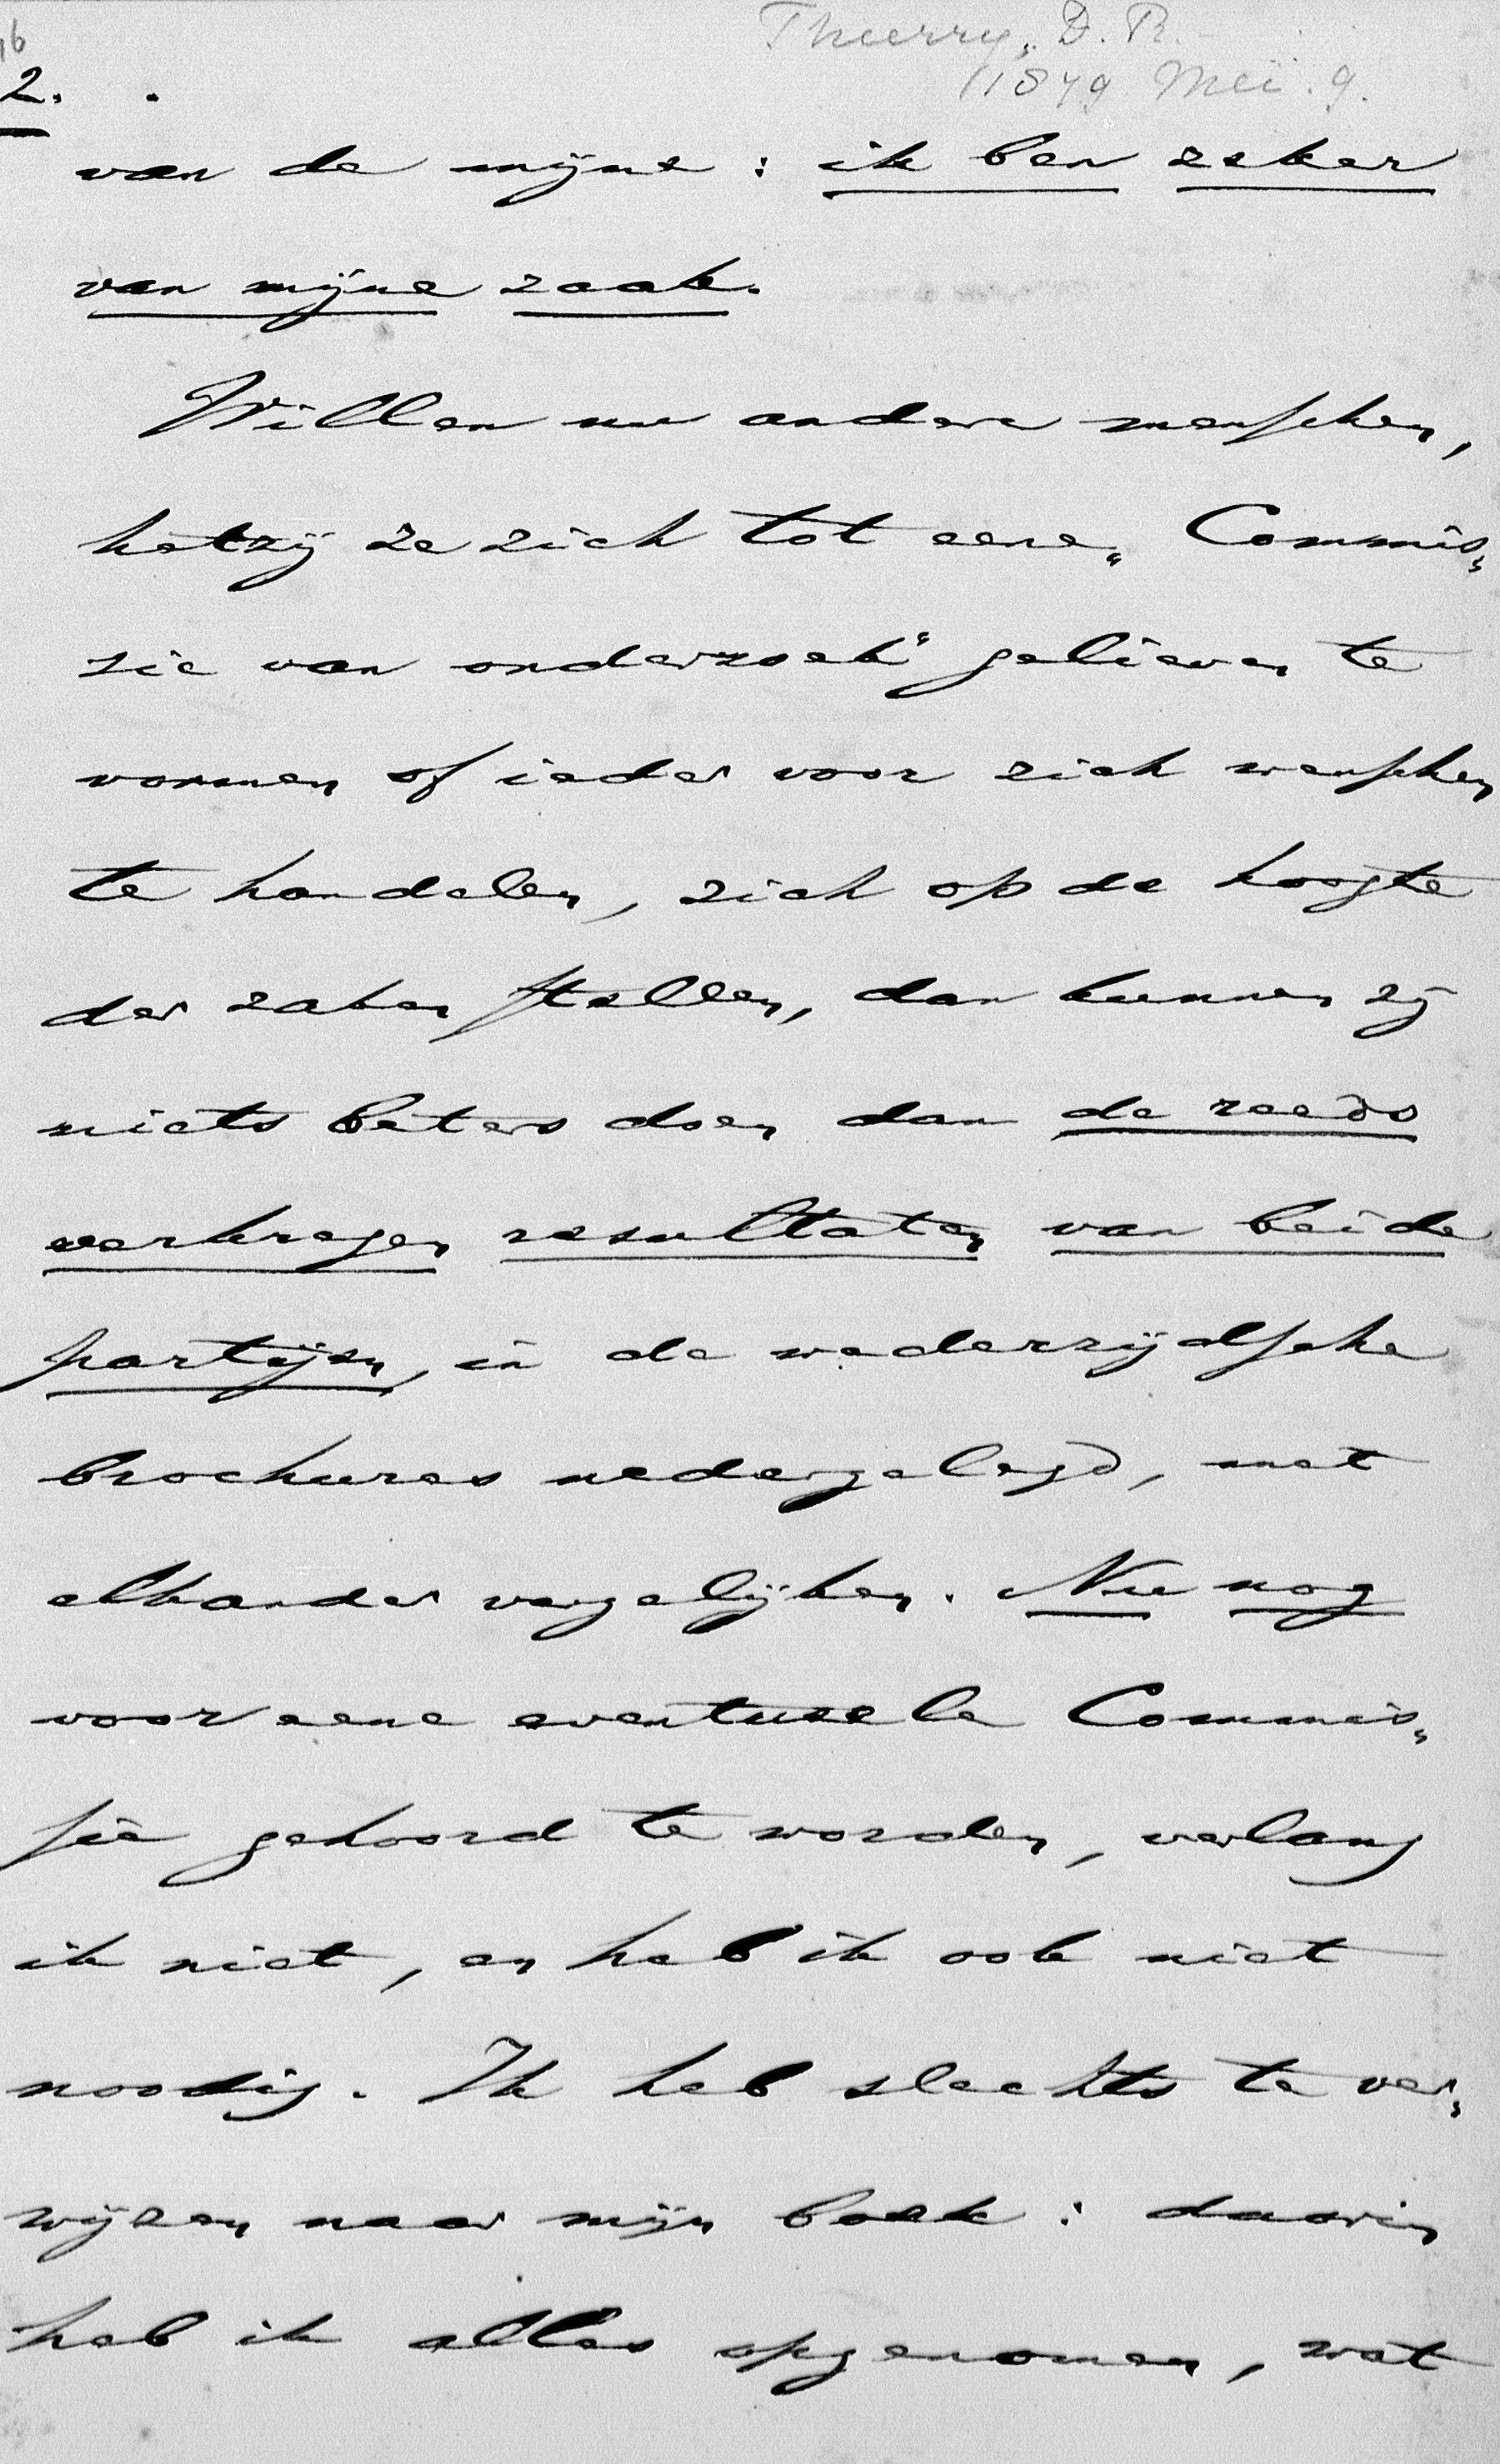 16
Thierry, D. R.
1879 Mei. 9.
2.
van de mijne: ik ben zeker
van mijne zaak.
Willen nu andere menschen,
hetzij ze zich tot eene „Commis„
sie van onderzoek“ gelieven te
vormen of ieder voor zich wenschen
te handelen, zich op de hoogte
der zaken stellen, dan kunnen zij
niets beters doen dan de reeds
verkregen resultaten van beide
partijen, in de wederzijdsche
brochures nedergelegd, met
elkander vergelijken. Nu nog
voor eene eventueele Commis„
sie gehoord te worden, verlang
ik niet, en heb ik ook niet
noodig. Ik heb slechts te ver„
wijzen naar mijn boek: daarin
heb ik alles opgenomen, wat